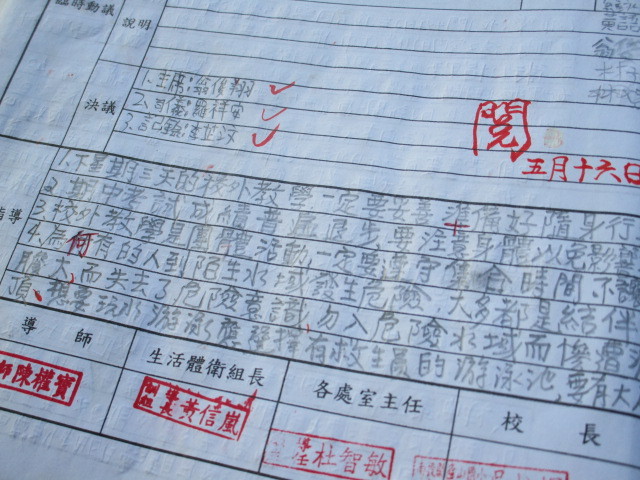 臨時動議
說明
決議
1.主席:翁俊翔
2.司儀:羅祥安
3.記錄:
閱
五月十六日
指導
1.下星期三天的校外教學一定要妥善準備好隨身行
2.期中考試成績普遍退步要注意身體以免影響
3.校外教學是團體活動,一定要遵守集合時間不
4.為何有的人到陌生水域發生危險,大多都是結伴
膽大,而失去了危險意識,勿入危險水域而慘遭
頂、想要玩水游泳應選擇有救生員的游泳池,要有大人
導師
生活體衛組長
各處室主任
校長
師陳權寶
副組導長黃信嵐
導主任杜智敏